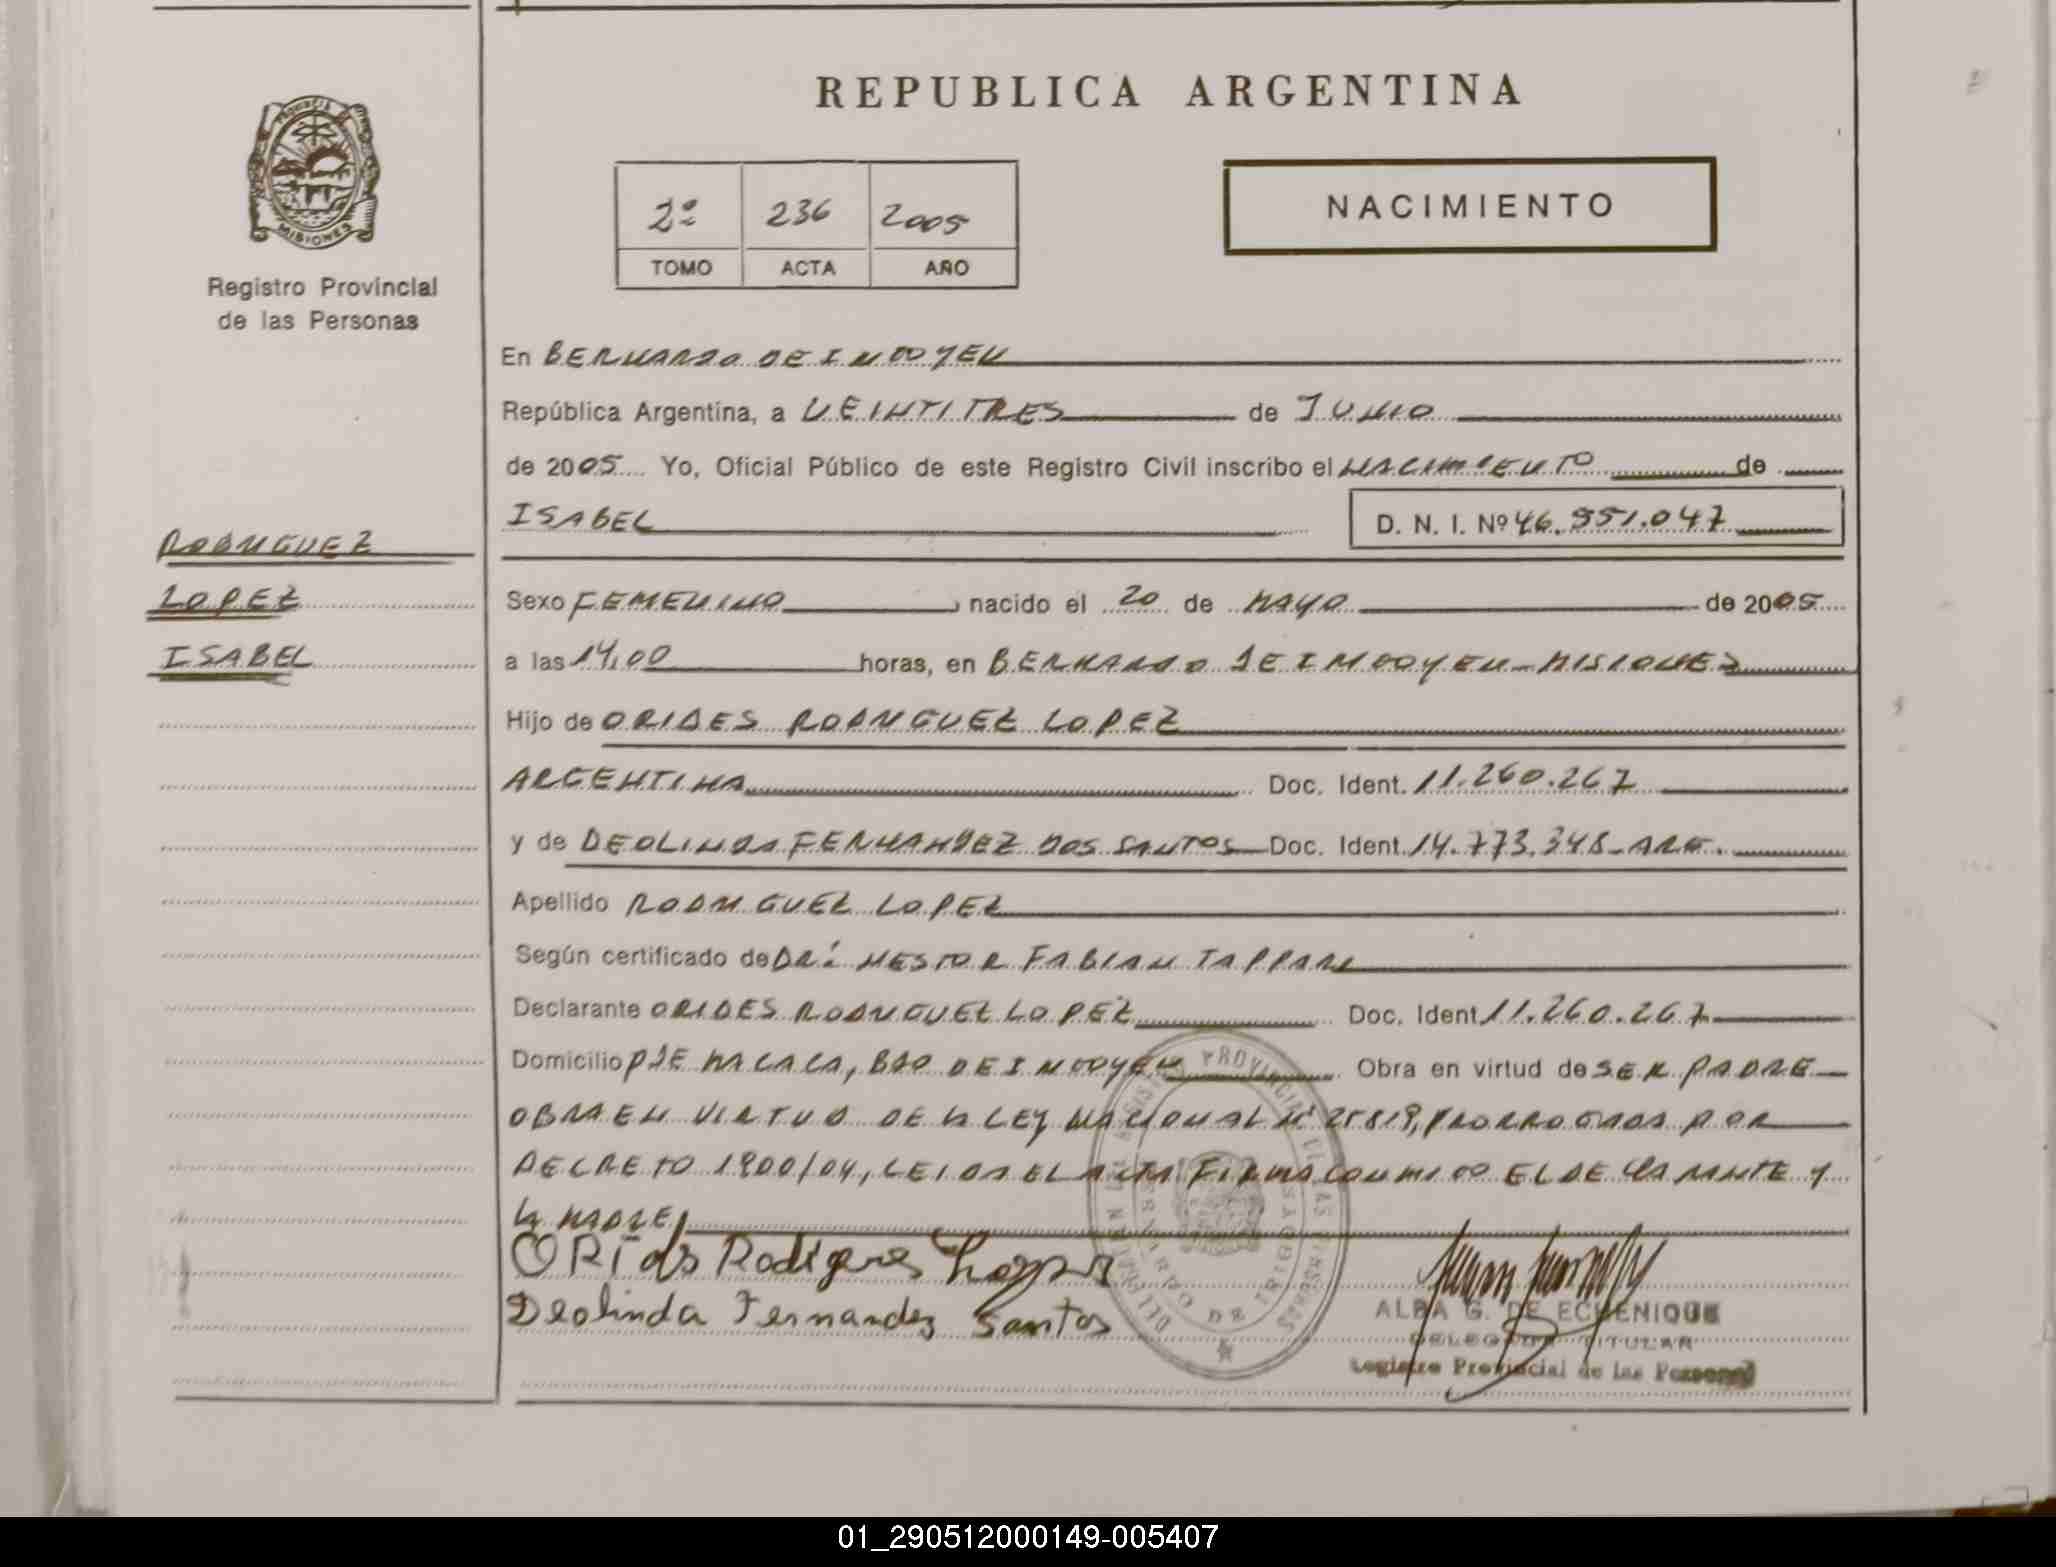 REPUBLICA ARGENTINA
PROVINCIA
MISIONES
Registro Provincial
de las Personas
2º 236 2005
TOMO ACTA AÑO
NACIMIENTO
En BERNARDO DE IRIGOYEN
República Argentina, a VEINTITRES de JUNIO
de 2005 Yo, Oficial Público de este Registro Civil inscribo el NACIMIENTO de
ISABEL D. N. I. Nº 46.551.047
RODRIGUEZ
LOPEZ
ISABEL
Sexo FEMENINO, nacido el 20 de MAYO de 2005
a las 14,00 horas, en BERNARDO DE IRIGOYEN-MISIONES
Hijo de ORIDES RODRIGUEZ LOPEZ
ARGENTINA Doc. Ident. 11.260.267
y de DEOLINDA FERNANDEZ DOS SANTOS Doc. Ident. 14.773.348-ARG.
Apellido RODRIGUEZ LOPEZ
Según certificado de DR: NESTOR FABIAN TAPPARI
Declarante ORIDES RODRIGUEZ LOPEZ Doc. Ident 11.260.267
Domicilio PJE MACACA, BDO DE IRIGOYEN Obra en virtud de SER PADRE
OBRA EN VIRTUD DE LA LEY NACIONAL Nº 25819, PRORROGADA POR
DECRETO 1900/04, LEIDA EL ACTA FIRMA CONMIGO EL DECLARANTE Y
LA MADRE
ORides Rodigues Lopes
Deolinda Fernandez Santos
ALBA G. DE ECHENIQUE
DELEGADA TITULAR
Registro Provincial de las Personas
01_290512000149-005407